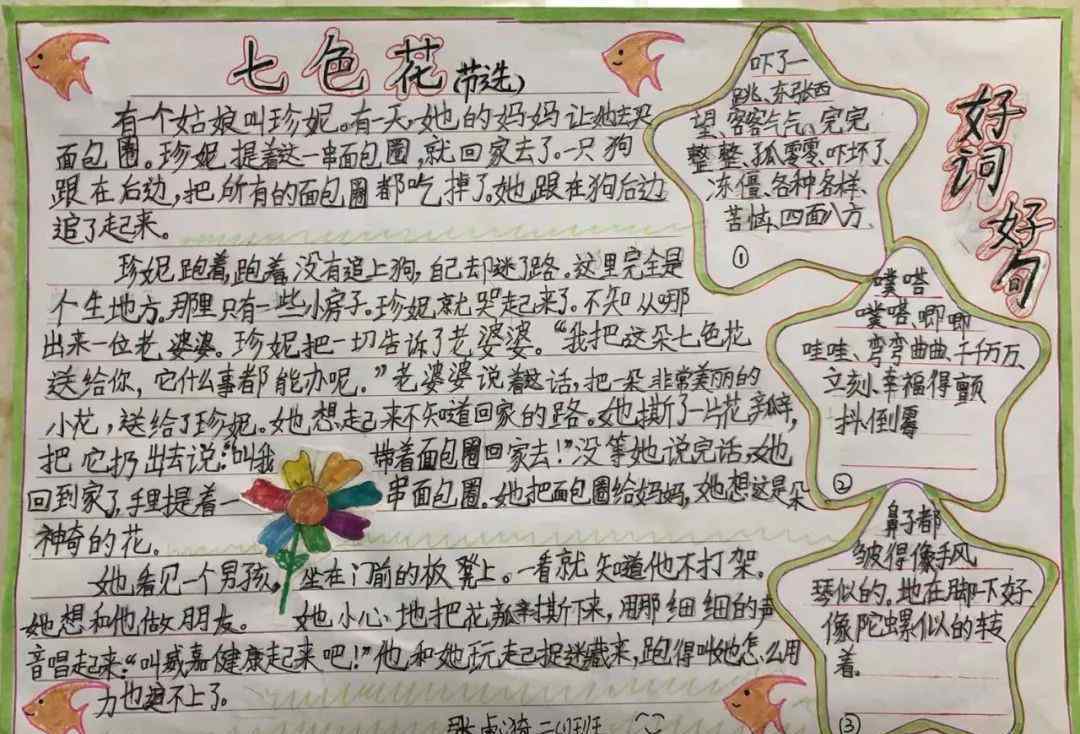 七色花(节选)
有一个姑娘叫珍妮。有一天,她的妈妈让她去买
面包圈。珍妮提着这一串面包圈,就回家去了。一只狗
跟在后边,把所有的面包圈都吃掉了。她跟在狗后边
追了起来。
珍妮跑着,跑着,没有追上狗,自己却迷了路。这里完全是
个生地方。那里只有一些小房子。珍妮就哭起来了。不知从哪
出来一位老婆婆。珍妮把一切告诉了老婆婆。“我把这朵七色花
送给你,它什么事都能办呢。”老婆婆说着这话,把一朵非常美丽的
小花,送给了珍妮。她想起来不知道回家的路。她撕了一片花瓣,
把它扔出去说:“叫我带着面包圈回家去!”没等她说完话,她
回到家了,手里提着一串面包圈。她把面包圈给妈妈,她想这是朵
神奇的花。
她看见一个男孩,坐在门前的板凳上。一看就知道他不打架。
她想和他做朋友。她小心地把花瓣撕下来,用那细细的声
音唱起来:“叫威嘉健康起来吧!”他和她玩起捉迷藏来,跑得叫她怎么用
力也追不上了。
二班
好词
好句
吓了一
跳、东张西
望、客客气气、完完
整整、孤零零、吓坏了、
冻僵、各种各样、
苦恼、四面八方、
①
噗嗒
噗嗒、唧唧
哇哇、弯弯曲曲、千千万万、
立刻、幸福得颤
抖、倒霉
②
鼻子都
皱得像手风
琴似的。地在脚下好
像陀螺似的转
着。
③